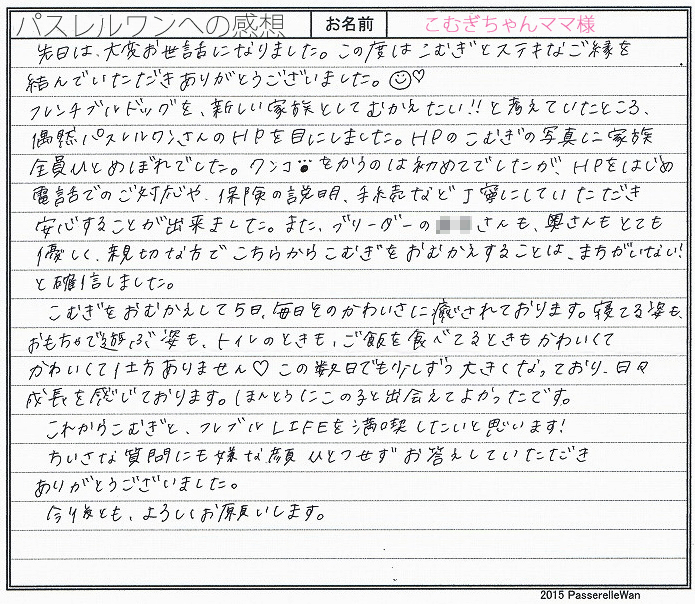 パスレルワンへの感想 お名前 こむぎちゃんママ様
先日は、大変お世話になりました。この度はこむぎとステキなご縁を
結んでいただきありがとうございました。☺♡
フレンチブルドッグを、新しい家族としてむかえたい!!と考えていたところ、
偶然パスレルワンさんのHPを目にしました。HPのこむぎの写真に家族
全員ひとめぼれでした。ワンコをかうのは初めてでしたが、HPをはじめ
電話でのご対応や、保険の説明、手続などT寧にしていただき
安心することが出来ました。また、ブリーダーのさんも、奥さんもとても
優しく、親切な方でこちらからこむぎをおむかえすることは、まちがいない!
と確信しました。
こむぎをおむかえして5日、毎日そのかわいさに癒されております。寝てる姿も、
おもちゃで遊ぶ姿も、トイレのときも、ご飯を食べてるときもかわいくて
かわいくて仕方ありません♡ この数日でも少しずつ大きくなっており、日々
成長を感じております。ほんとうにこの子と出会えてよかったです。
これからこむぎと、フレブルLIFEを満喫したいと思います!
ちいさな質問にも嫌な顔ひとつせずお答えしていただき
ありがとうございました。
今後とも、よろしくお願いします。
2015 PasserelleWan